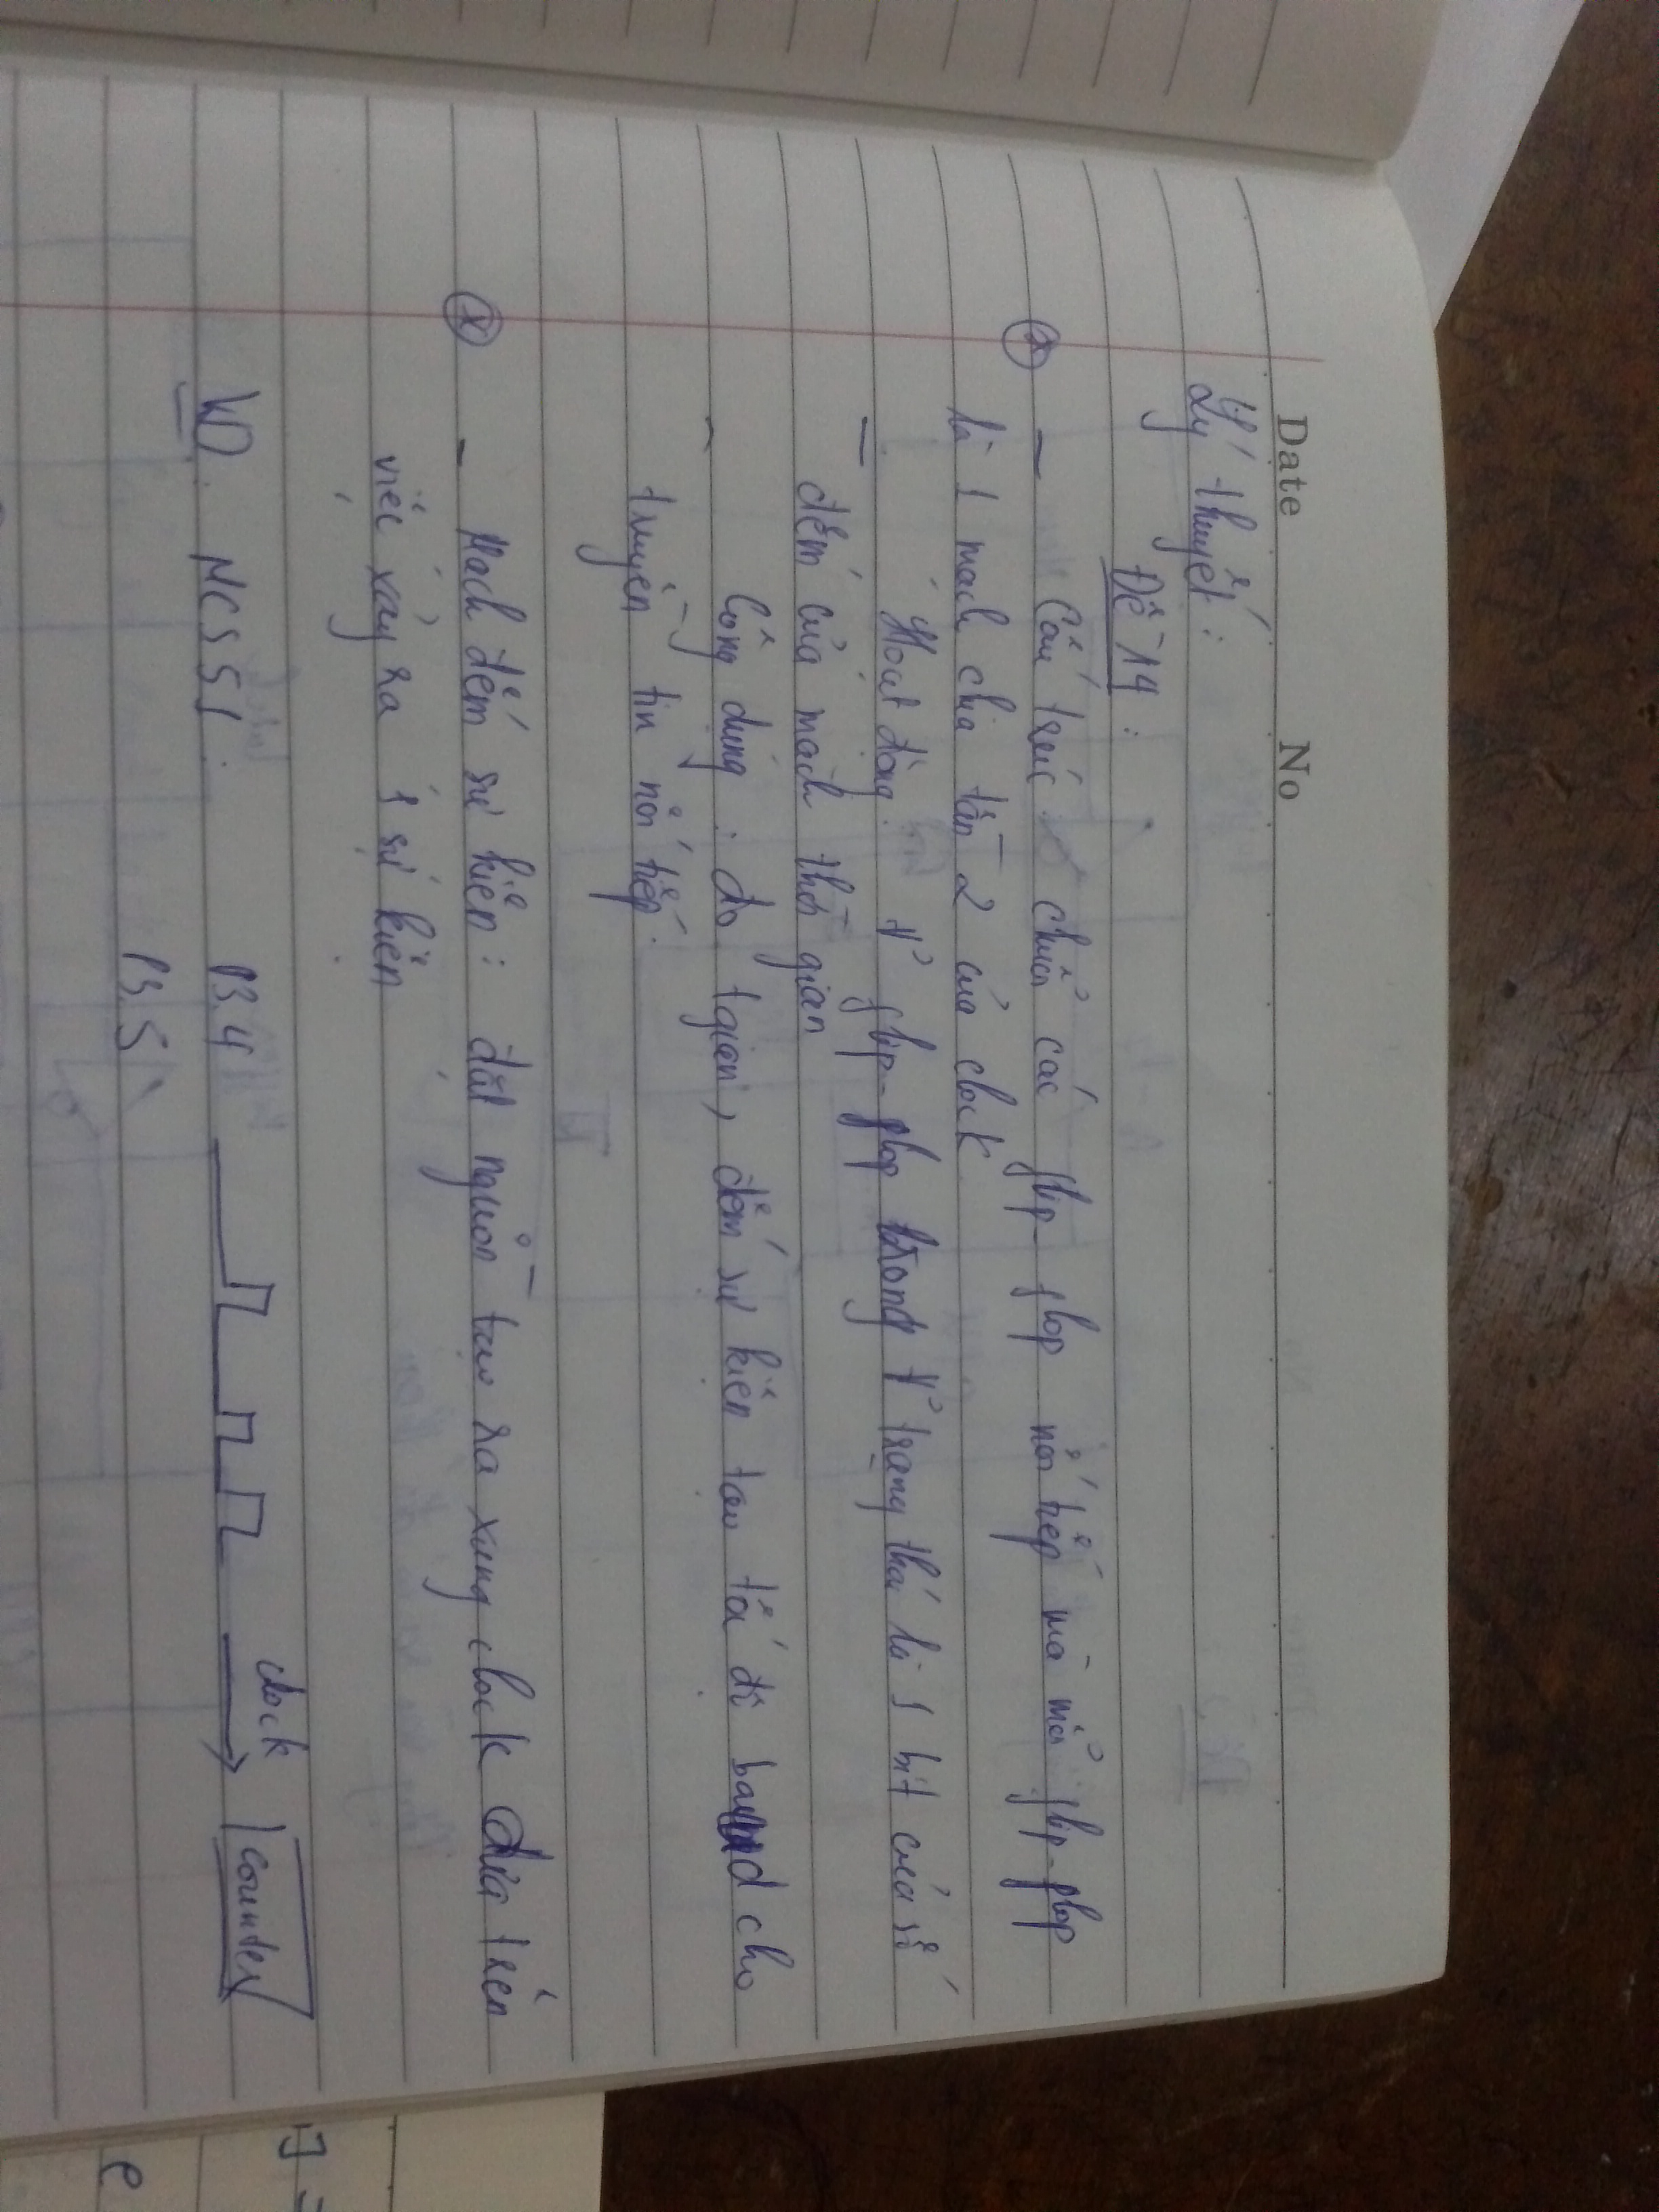 Date No
Lý thuyết:
Đề 14:
- Cấu trúc: chuỗi các flip-flop nối tiếp mà mỗi flip-flop
là 1 mạch chia tần 2 của clock
- Hoạt động: flip-flop trong trạng thái là 1 bit của số
đếm của mạch thời gian
- Công dụng: đo tgian, đếm sự kiện tạo tốc độ baud cho
truyền tin nối tiếp.
- Mạch đếm sự kiện: đặt nguồn tạo ra xung clock dựa trên
việc xảy ra 1 sự kiện
clock
VD: MCS51: P3.4 counter
P3.5
e